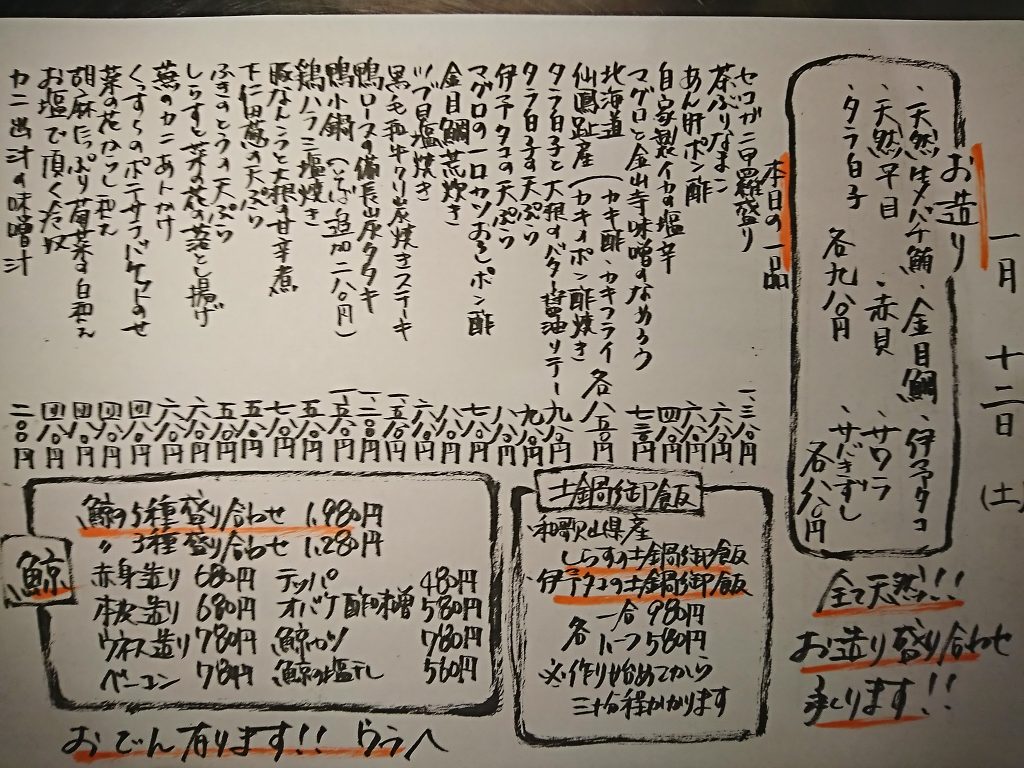 一月 十二日(土)
お造り
・天然生メバチ鮪・金目鯛・伊予タコ
・天然平目・赤貝・サワラ
・タラ白子
各九八〇円
サバきずし
各八八〇円
全て天然!!
お造り盛り合わせ
承ります!!
本日の一品
セコガニ甲羅盛り 一、三八〇円
茶ぶりなまこ 六八〇円
あん肝ポン酢 六八〇円
自家製イカの塩辛 四八〇円
マグロと金山寺味噌のなめろう 七三〇円
北海道
仙鳳趾産(カキ酢・カキフライ
カキポン酢焼き 各八五〇円
タラ白子と大根のバター醤油ソテー 九八〇円
タラ白子の天ぷら 九八〇円
伊予タコの天ぷら 八八〇円
マグロの一口カツおろしポン酢 七八〇円
金目鯛荒炊き 八八〇円
ツブ貝塩焼き 六八〇円
黒毛和牛クリ炭焼きステーキ 一、五八〇円
鴨ロースの備長炭タタキ 一、二〇〇円
鴨小鍋(そば追加二八〇円) 一、五八〇円
鶏ハラミ塩焼き 五八〇円
豚なんこつと大根の甘辛煮 七八〇円
下仁田葱の天ぷら 五八〇円
ふきのとうの天ぷら 五八〇円
しらすと菜の花の落とし揚げ 六八〇円
蕪のカニあんかけ 六八〇円
くんすらのポテサラバケットのせ 四八〇円
菜の花からし和え 四八〇円
胡麻たっぷり菊菜の白和え 四八〇円
お塩で頂く冷奴 四八〇円
カニ出汁の味噌汁 二〇〇円
土鍋御飯
・和歌山県産
しらすの土鍋御飯
・伊予タコの土鍋御飯
各 一合 980円
ハーフ 580円
※作り始めてから
三十分程かかります
鯨
鯨の5種盛り合わせ 1,980円
〃 3種盛り合わせ 1,280円
赤身造り 680円 テッパ 480円
本皮造り 680円 オバケ酢味噌 580円
ウネス造り 780円 鯨カツ 780円
ベーコン 780円 鯨の塩干し 560円
おでん有ります!! ウラへ